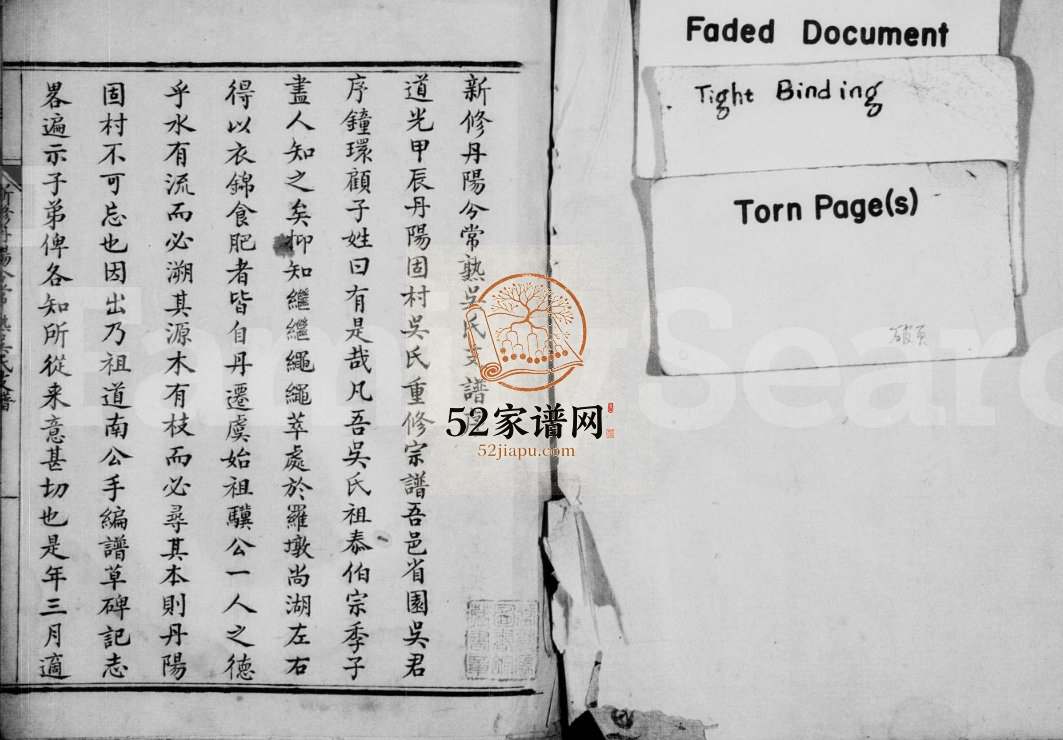 新修丹陽分常熟吳氏支譜序
道光甲辰丹陽固村吳氏重修宗譜吾邑省園吳君
序鐘環顧子姓曰有是哉凡吾吳氏祖泰伯宗季子
盡人知之矣抑知繼繼繩繩萃處於羅墩尚湖左右
得以衣錦食肥者皆自丹遷虞始祖驥公一人之德
乎水有流而必溯其源木有枝而必尋其本則丹陽
固村不可忘也因出乃祖道南公手編譜草碑記志
畧遍示子弟俾各知所從来意甚切也是年三月適
新修丹陽分常熟吳氏支譜
Faded Document
Tight Binding
Torn Page(s)
破頁
52家谱网
52jiapu.com
FamilySearc